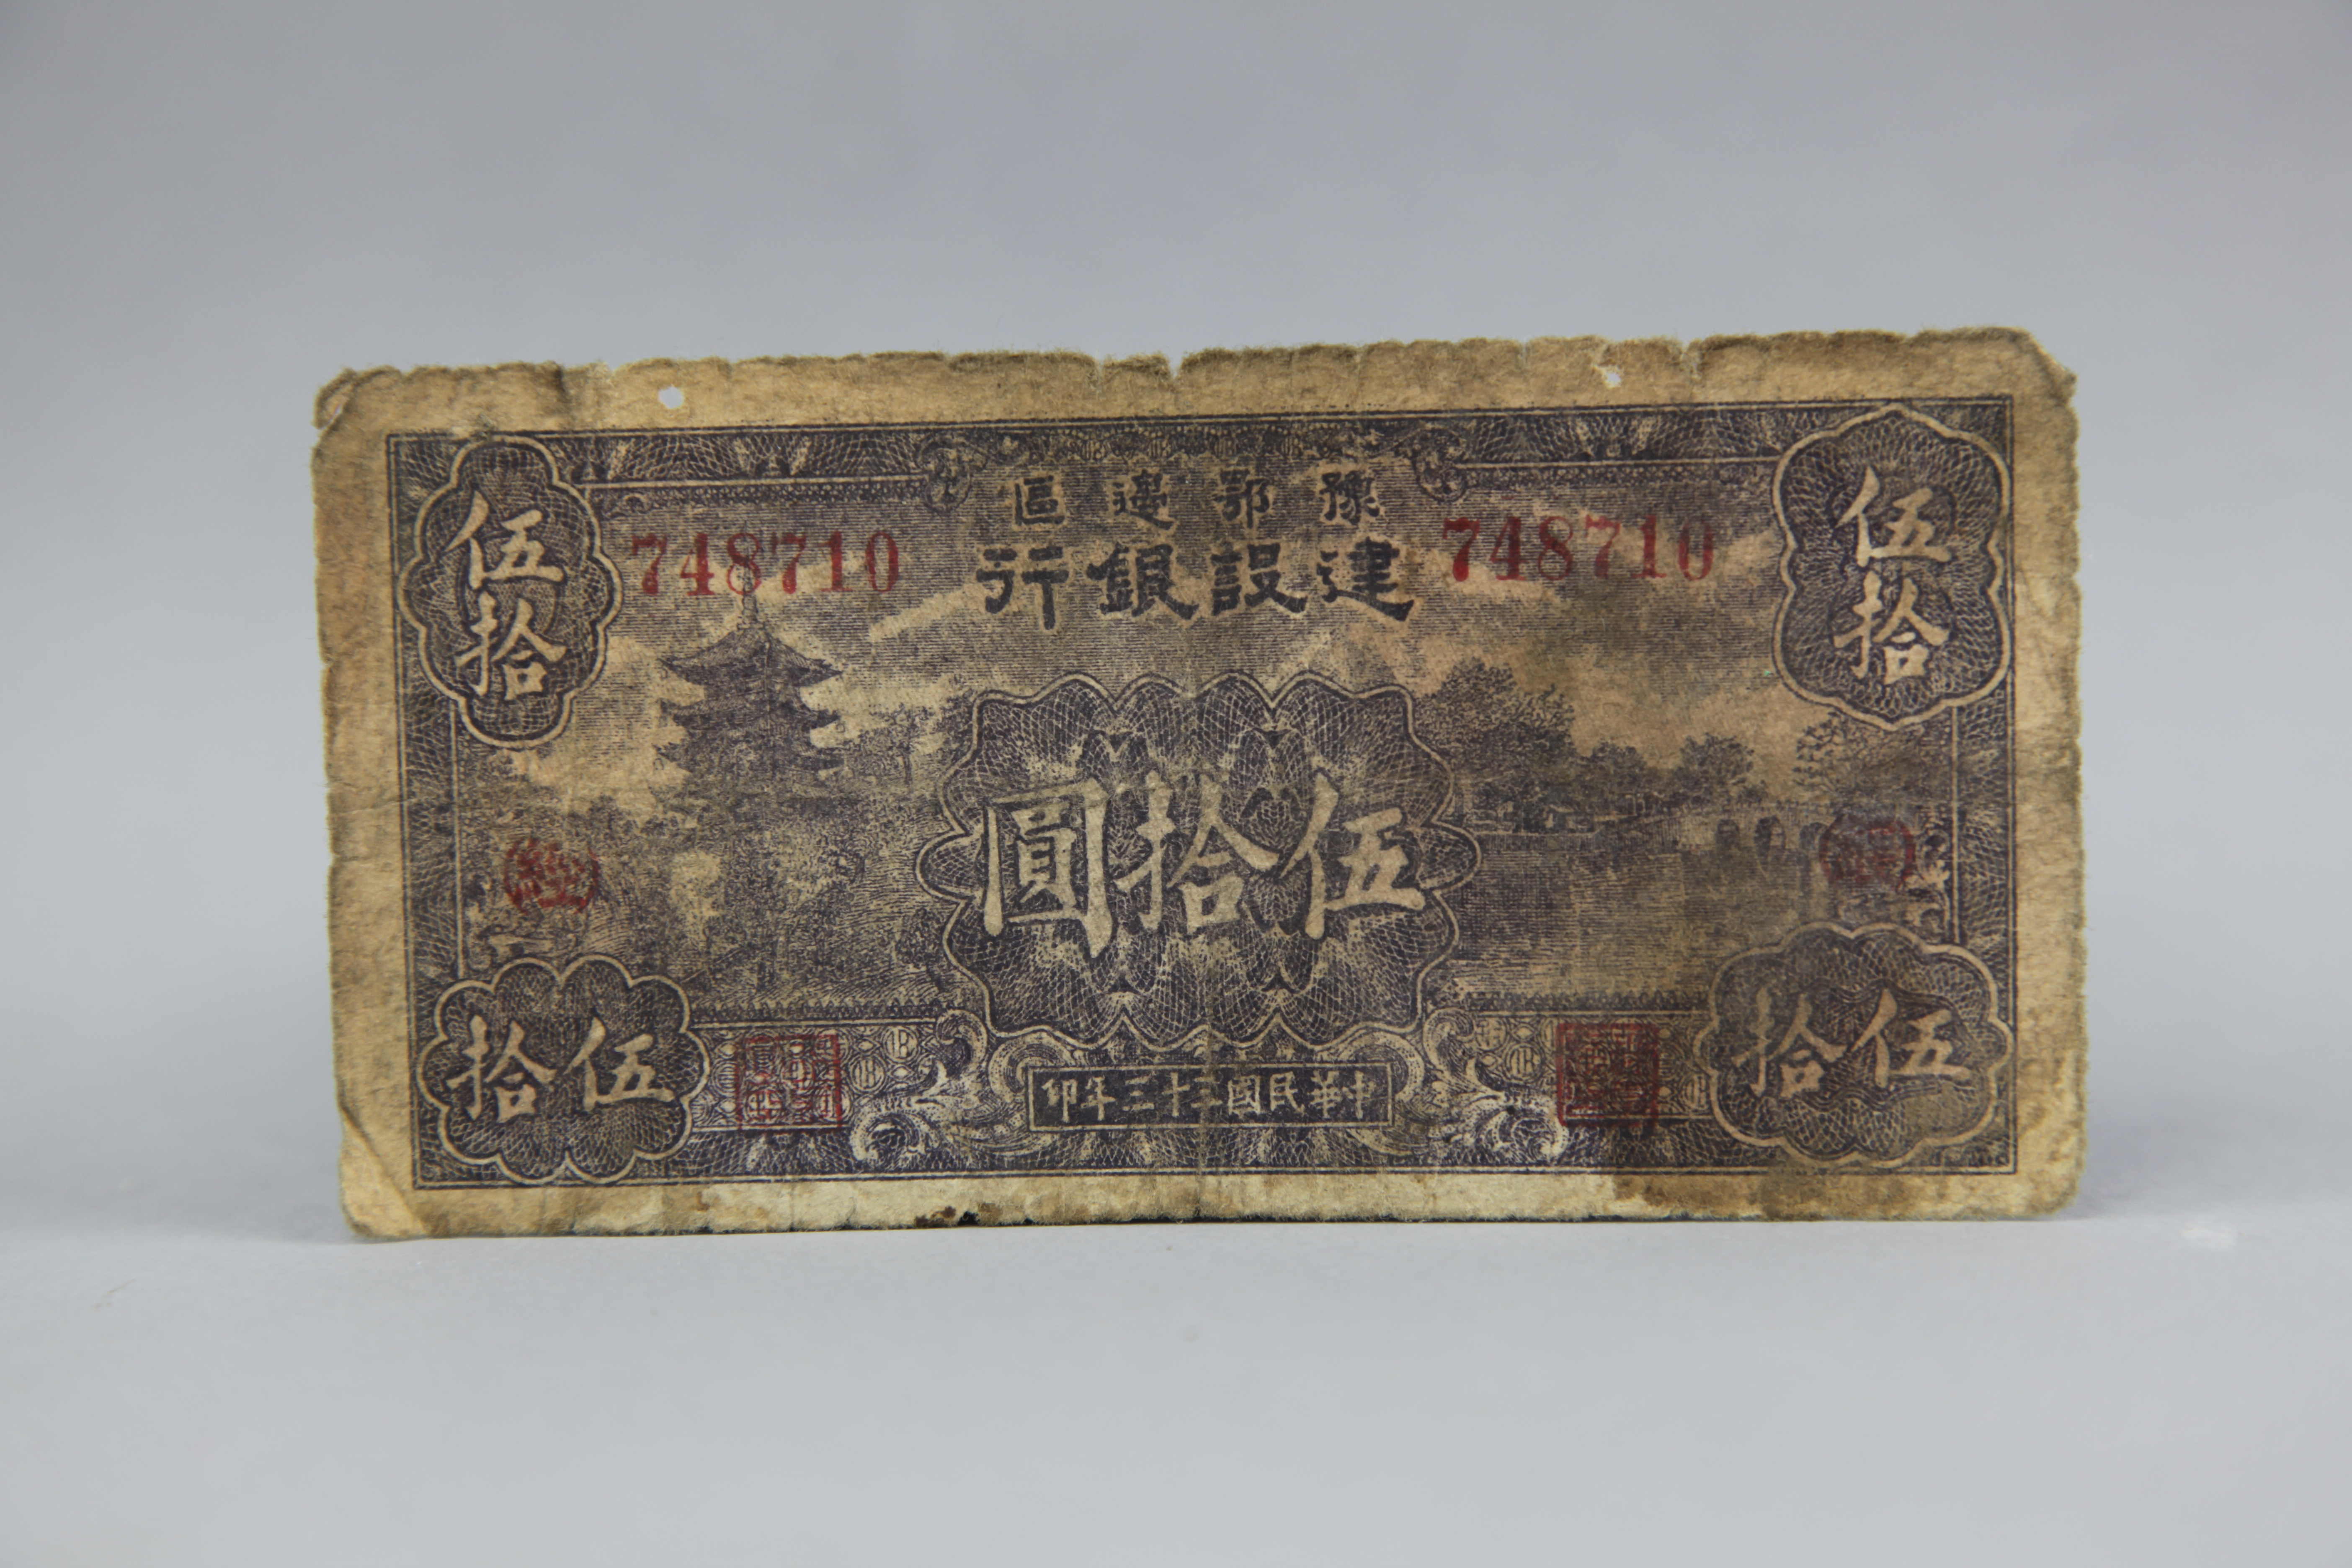 豫鄂邊區
建設銀行
748710
748710
伍拾
伍拾
伍拾圓
伍拾
伍拾
中華民國三十三年印